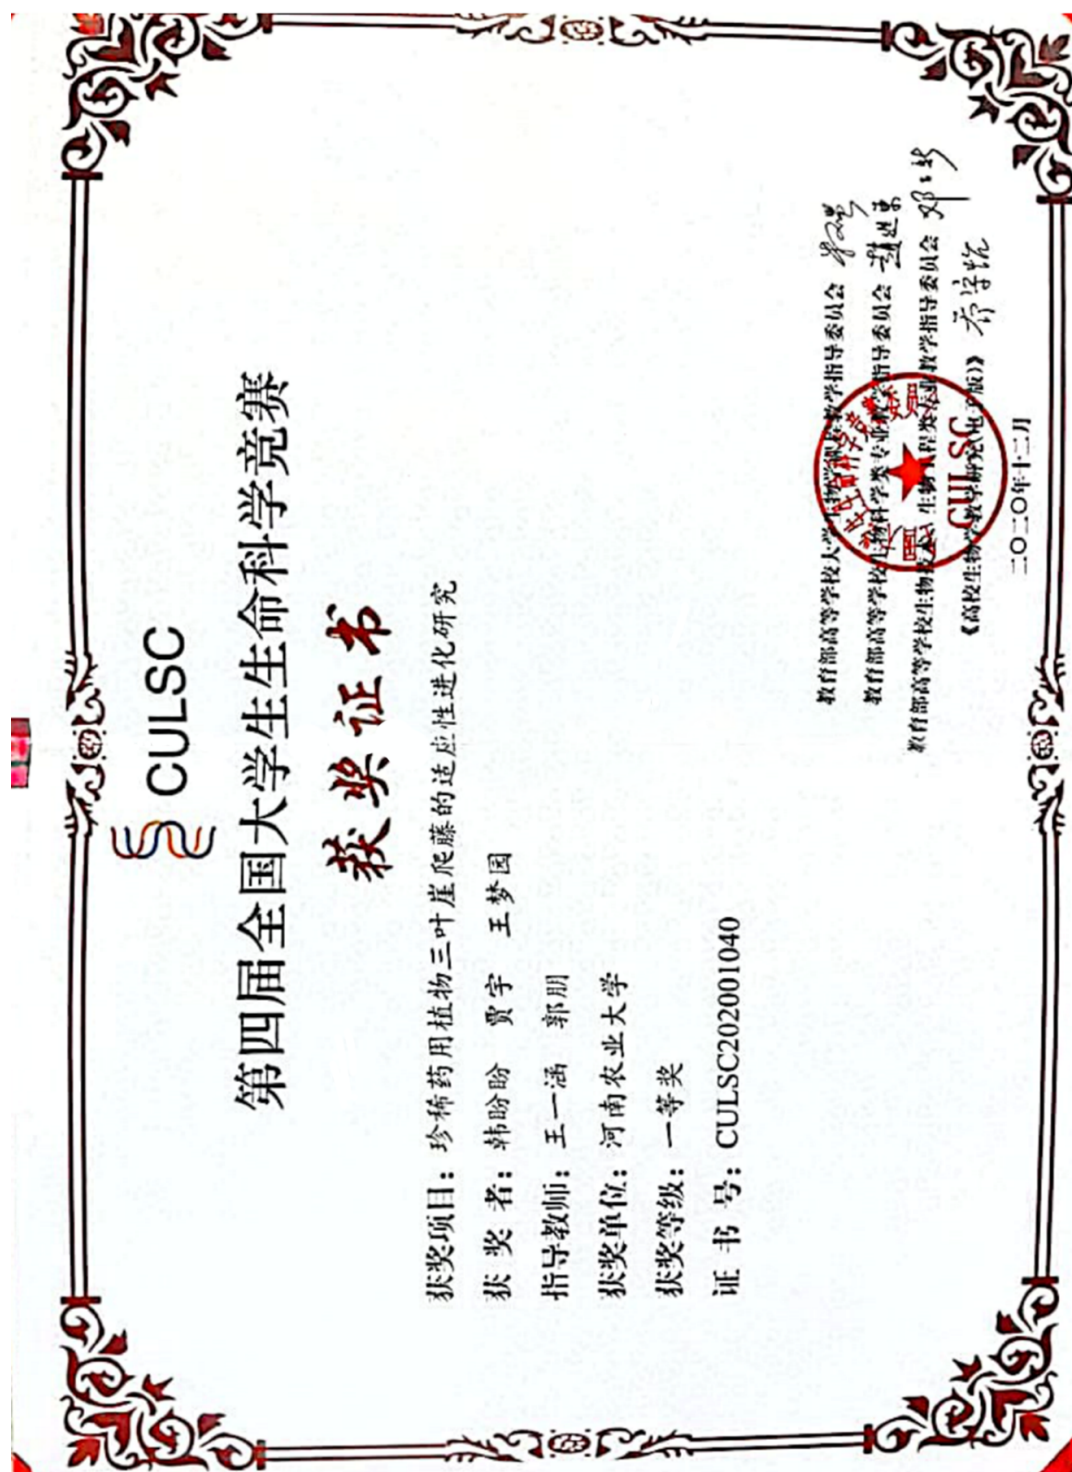 CULSC
第四届全国大学生生命科学竞赛
获奖证书
获奖项目：珍稀药用植物三叶崖爬藤的适应性进化研究
获 奖 者：韩盼盼 贾宇 王梦园
指导教师：王一涵 郭朋
获奖单位：河南农业大学
获奖等级：一等奖
证 书 号：CULSC202001040
教育部高等学校大学生物学课程教学指导委员会
教育部高等学校生物科学类专业教学指导委员会 赵进东
教育部高等学校生物技术、生物工程类专业教学指导委员会
《高校生物学教学研究(电子版)》 乔守怡
CULSC
二〇二〇年十二月